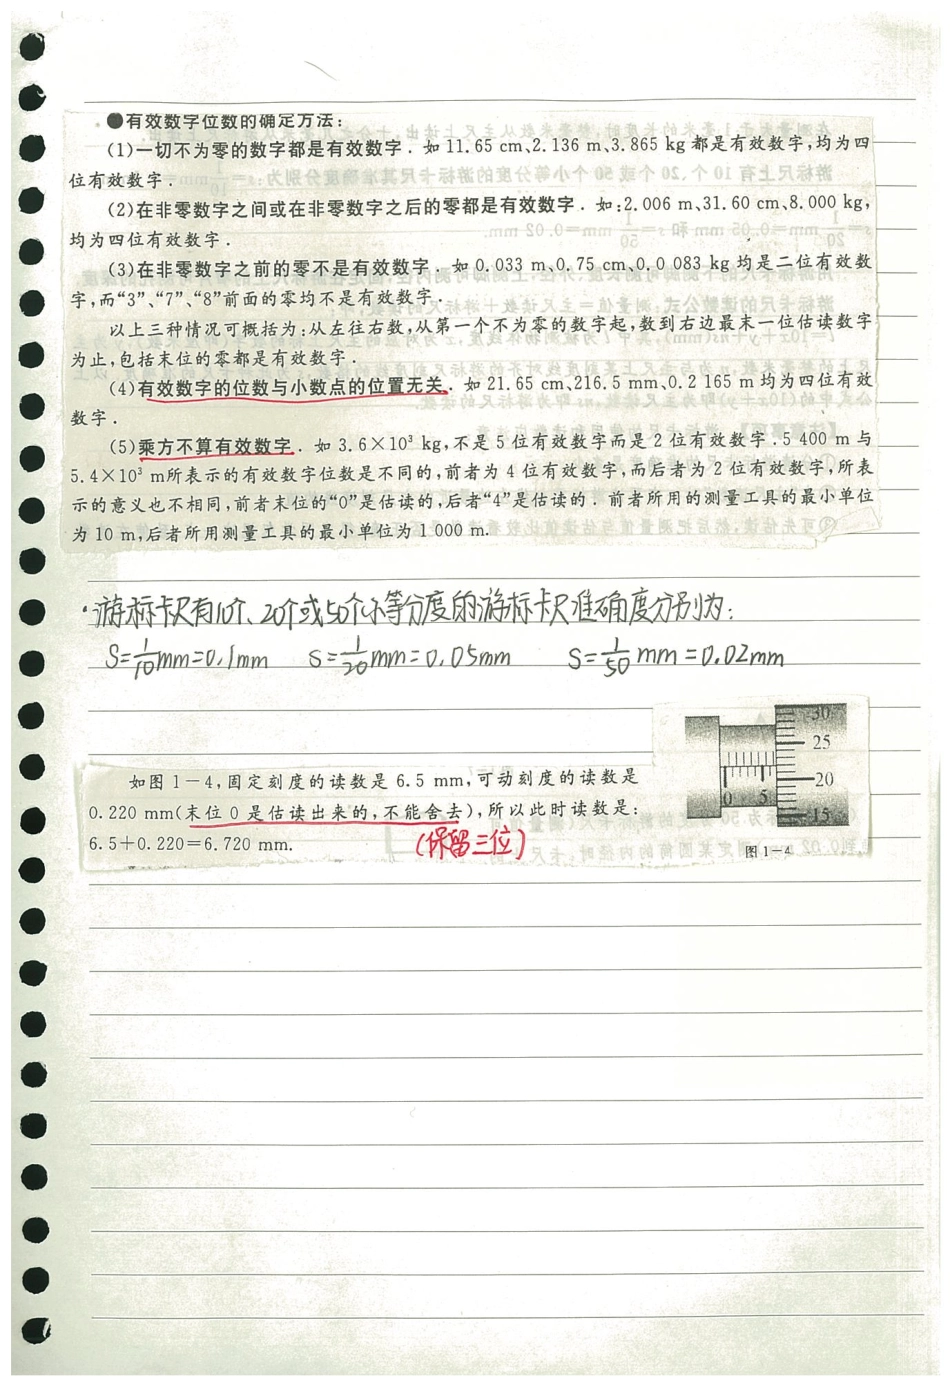 ●有效数字位数的确定方法:
(1)一切不为零的数字都是有效数字.如11.65 cm、2.136 m、3.865 kg都是有效数字,均为四
位有效数字.
(2)在非零数字之间或在非零数字之后的零都是有效数字.如:2.006 m、31.60 cm、8.000 kg,
均为四位有效数字.
(3)在非零数字之前的零不是有效数字.如0.033 m、0.75 cm、0.0 083 kg均是二位有效数
字,而“3”、“7”、“8”前面的零均不是有效数字.
以上三种情况可概括为:从左往右数,从第一个不为零的数字起,数到右边最末一位估读数字
为止,包括末位的零都是有效数字.
(4)有效数字的位数与小数点的位置无关.如21.65 cm、216.5 mm、0.2 165 m均为四位有效
数字.
(5)乘方不算有效数字.如3.6×10³ kg,不是5位有效数字而是2位有效数字.5 400 m与
5.4×10³ m所表示的有效数字位数是不同的,前者为4位有效数字,而后者为2位有效数字,所表
示的意义也不相同,前者末位的“0”是估读的,后者“4”是估读的.前者所用的测量工具的最小单位
为10 m,后者所用测量工具的最小单位为1 000 m.
·游标卡尺有10个、20个或50个小等分度的游标卡尺准确度分别为:
S=1/10mm=0.1mm S=1/20mm=0.05mm S=1/50mm=0.02mm
如图1-4,固定刻度的读数是6.5 mm,可动刻度的读数是
0.220 mm(末位0是估读出来的,不能舍去),所以此时读数是:
6.5+0.220=6.720 mm.
(保留三位)
30
25
20
15
0 5
图1-4